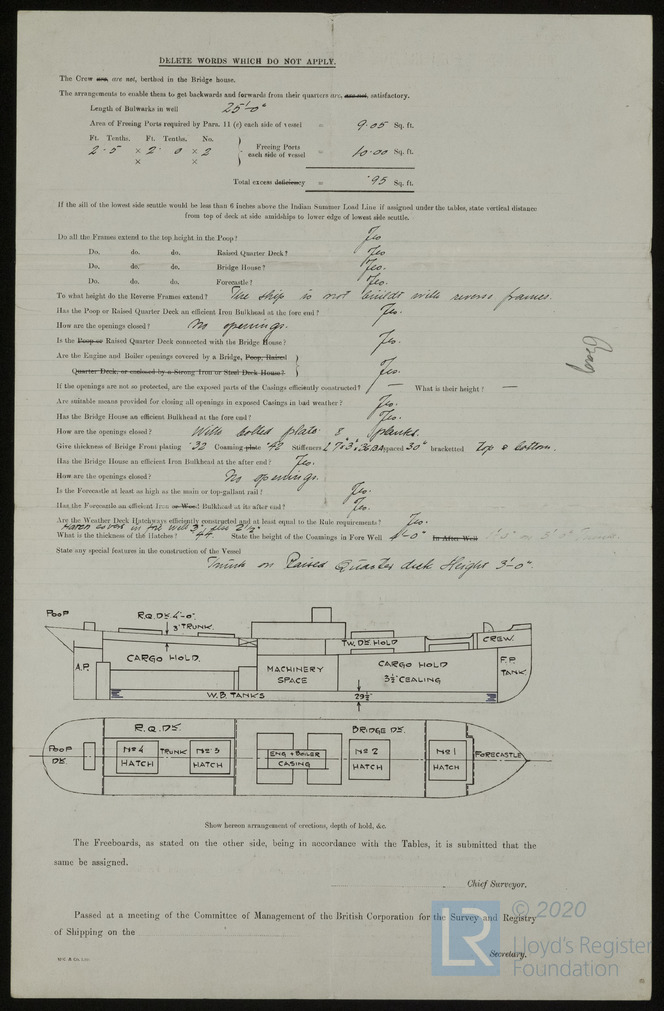 DELETE WORDS WHICH DO NOT APPLY.
The Crew are, are not, berthed in the Bridge house.
The arrangements to enable them to get backwards and forwards from their quarters are, are not, satisfactory.
Length of Bulwarks in well 25'-0"
Area of Freeing Ports required by Para. 11 (e) each side of vessel = 9.05 Sq. ft.
Ft. Tenths. Ft. Tenths. No.
2.5 × 2.0 × 2 } Freeing Ports each side of vessel = 10.00 Sq. ft.
× ×
Total excess deficiency = .95 Sq. ft.
If the sill of the lowest side scuttle would be less than 6 inches above the Indian Summer Load Line if assigned under the tables, state vertical distance
from top of deck at side amidships to lower edge of lowest side scuttle.
Do all the Frames extend to the top height in the Poop? Yes
Do. do. do. Raised Quarter Deck? Yes
Do. do. do. Bridge House? Yes.
Do. do. do. Forecastle? Yes.
To what height do the Reverse Frames extend? The ship is not built with reverse frames.
Has the Poop or Raised Quarter Deck an efficient Iron Bulkhead at the fore end? Yes.
How are the openings closed? No openings.
Is the Poop or Raised Quarter Deck connected with the Bridge House? Yes.
Are the Engine and Boiler openings covered by a Bridge, Poop, Raised
Quarter Deck, or enclosed by a Strong Iron or Steel Deck House? } Yes.
If the openings are not so protected, are the exposed parts of the Casings efficiently constructed? — What is their height? —
Are suitable means provided for closing all openings in exposed Casings in bad weather? Yes.
Has the Bridge House an efficient Bulkhead at the fore end? Yes.
How are the openings closed? With bolted plate & planks.
Give thickness of Bridge Front plating .32 Coaming plate .42 Stiffeners spaced 30" bracketted Top & bottom.
Has the Bridge House an efficient Iron Bulkhead at the after end? Yes.
How are the openings closed? No openings.
Is the Forecastle at least as high as the main or top-gallant rail? Yes.
Has the Forecastle an efficient Iron or Wood Bulkhead at its after end? Yes.
Are the Weather Deck Hatchways efficiently constructed and at least equal to the Rule requirements? Yes.
What is the thickness of the Hatches? State the height of the Coamings in Fore Well 4'-0" In After Well
State any special features in the construction of the Vessel
Trunk on Raised Quarter deck Height 3'-0".
POOP
R.Q.DK. 4'-0"
3' TRUNK.
TW. DK. HOLD
CREW.
A.P.
CARGO HOLD.
MACHINERY SPACE
CARGO HOLD
3½" CEALING
F.P. TANK.
W.B. TANKS
29½"
R.Q.DK.
BRIDGE DK.
POOP DK.
No 4 HATCH
TRUNK
No 3 HATCH
ENG + BOILER CASING
No 2 HATCH
No 1 HATCH
FORECASTLE
Show hereon arrangement of erections, depth of hold, &c.
The Freeboards, as stated on the other side, being in accordance with the Tables, it is submitted that the
same be assigned.
Chief Surveyor.
Passed at a meeting of the Committee of Management of the British Corporation for the Survey and Registry
of Shipping on the
Secretary.
© 2020
LR
Lloyd's Register
Foundation